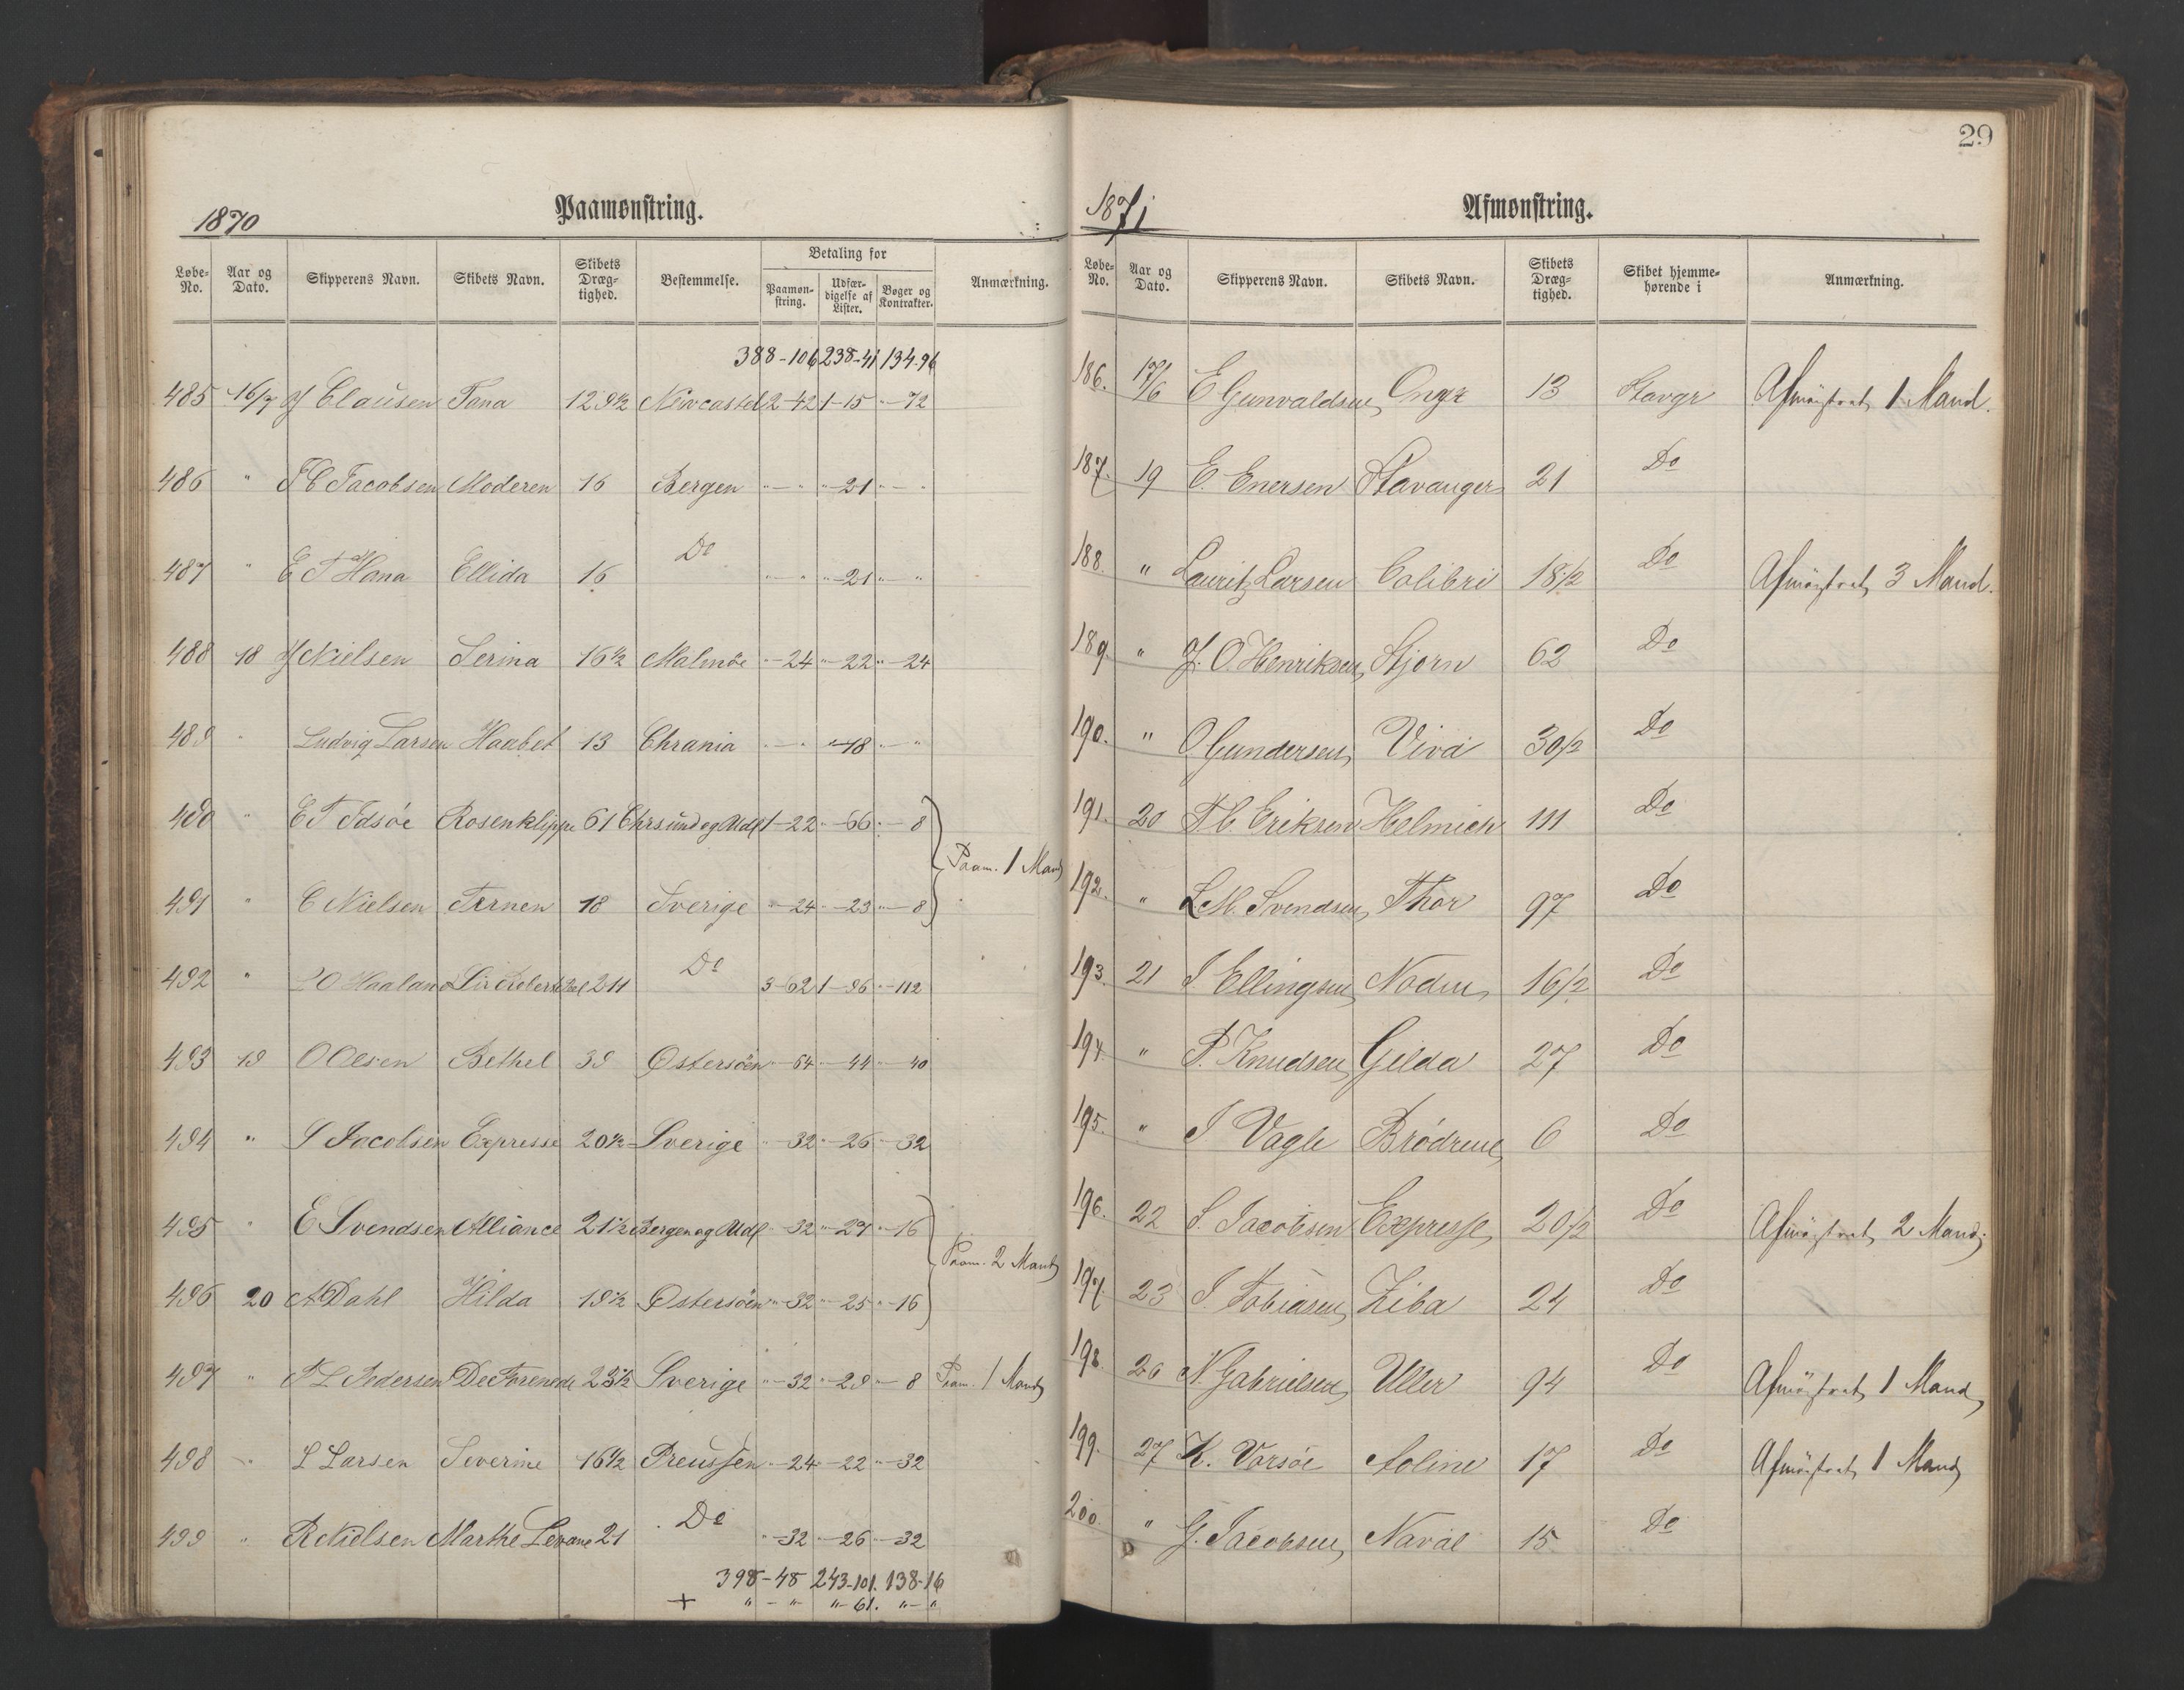 1870 Paamønstring.
Løbe-No. Aar og Dato. Skipperens Navn. Skibets Navn. Skibets Dræg-tighed. Bestemmelse. Betaling for Paamøn-string. Udfær-digelse af Lister. Bøger og Kontrakter. Anmærkning.
388-106 238-41 134-96
485 16/7 Clausen Tana 129½ Newcastel 2-42 1-15 "-72
486 " Jacobsen Moderen 16 Bergen "-" "-21 "-"
487 " E T Hana Ellida 16 Do "-" "-21 "-"
488 18 Nielsen Serina 16½ Malmöe "-24 "-22 "-24
489 " Ludvig Larsen Haabet 13 Chrania "-" "-18 "-"
490 " E T Idsöe Rosenklippe 61 Chrsund og Udl 1-22 "-66 "-8
Paam. 1 Mand
491 " C Nielsen Ternen 18 Sverige "-24 "-23 "-8
492 " Haalan Sir Robert Peel 211 Do 3-62 1-96 "-112
493 19 O Olsen Bethel 39 Østersöen "-64 "-44 "-40
494 " S Jacobsen Expresse 20½ Sverige "-32 "-26 "-32
495 " E Svendsen Alliance 21½ Bergen og Udl "-32 "-27 "-16
Paam. 2 Mand
496 20 A Dahl Hilda 19½ Østersöen "-32 "-25 "-16
497 " T L Pedersen De Forenede 23½ Sverige "-32 "-29 "-8 Paam. 1 Mand
498 " L Larsen Severine 16½ Preussen "-24 "-22 "-32
499 " R Nielsen Marthe 21 Do "-32 "-26 "-32
398-48 243-101. 138-16
+ "-" "-61. "-"
29
1871 Afmønstring.
Løbe-No. Aar og Dato. Skipperens Navn. Skibets Navn. Skibets Dræg-tighed. Skibet hjemme-hørende i Anmærkning.
186. 17/6 E Gunvaldsen 13 Stavgr Afmönstret 1 Mand.
187. 19 E. Enersen Stavanger 21 Do
188. " Lauritz Larsen Colibri 18½ Do Afmönstret 3 Mand.
189. " J. O. Henriksen Stjern 62 Do
190. " O. Gundersen Viva 30½ Do
191. 20 T. C. Eriksen Helmich 111 Do
192. " L. M. Svendsen Thor 97 Do
193. 21 J Ellingsen 16½ Do
194. " P. Knudsen Gilda 27 Do
195. " J Vagle Brödrene 6 Do
196. 22 S. Jacobsen Expresse 20½ Do Afmönstret 2 Mand.
197. 23 J. Tobiasen Ziba 24 Do
198. 26 N. Gabrielsen Uller 94 Do Afmönstret 1 Mand
199. 27 K. Vorsöe Aoline 17 Do Afmönstret 1 Mand
200. " G. Jacobsen Naval 15 Do